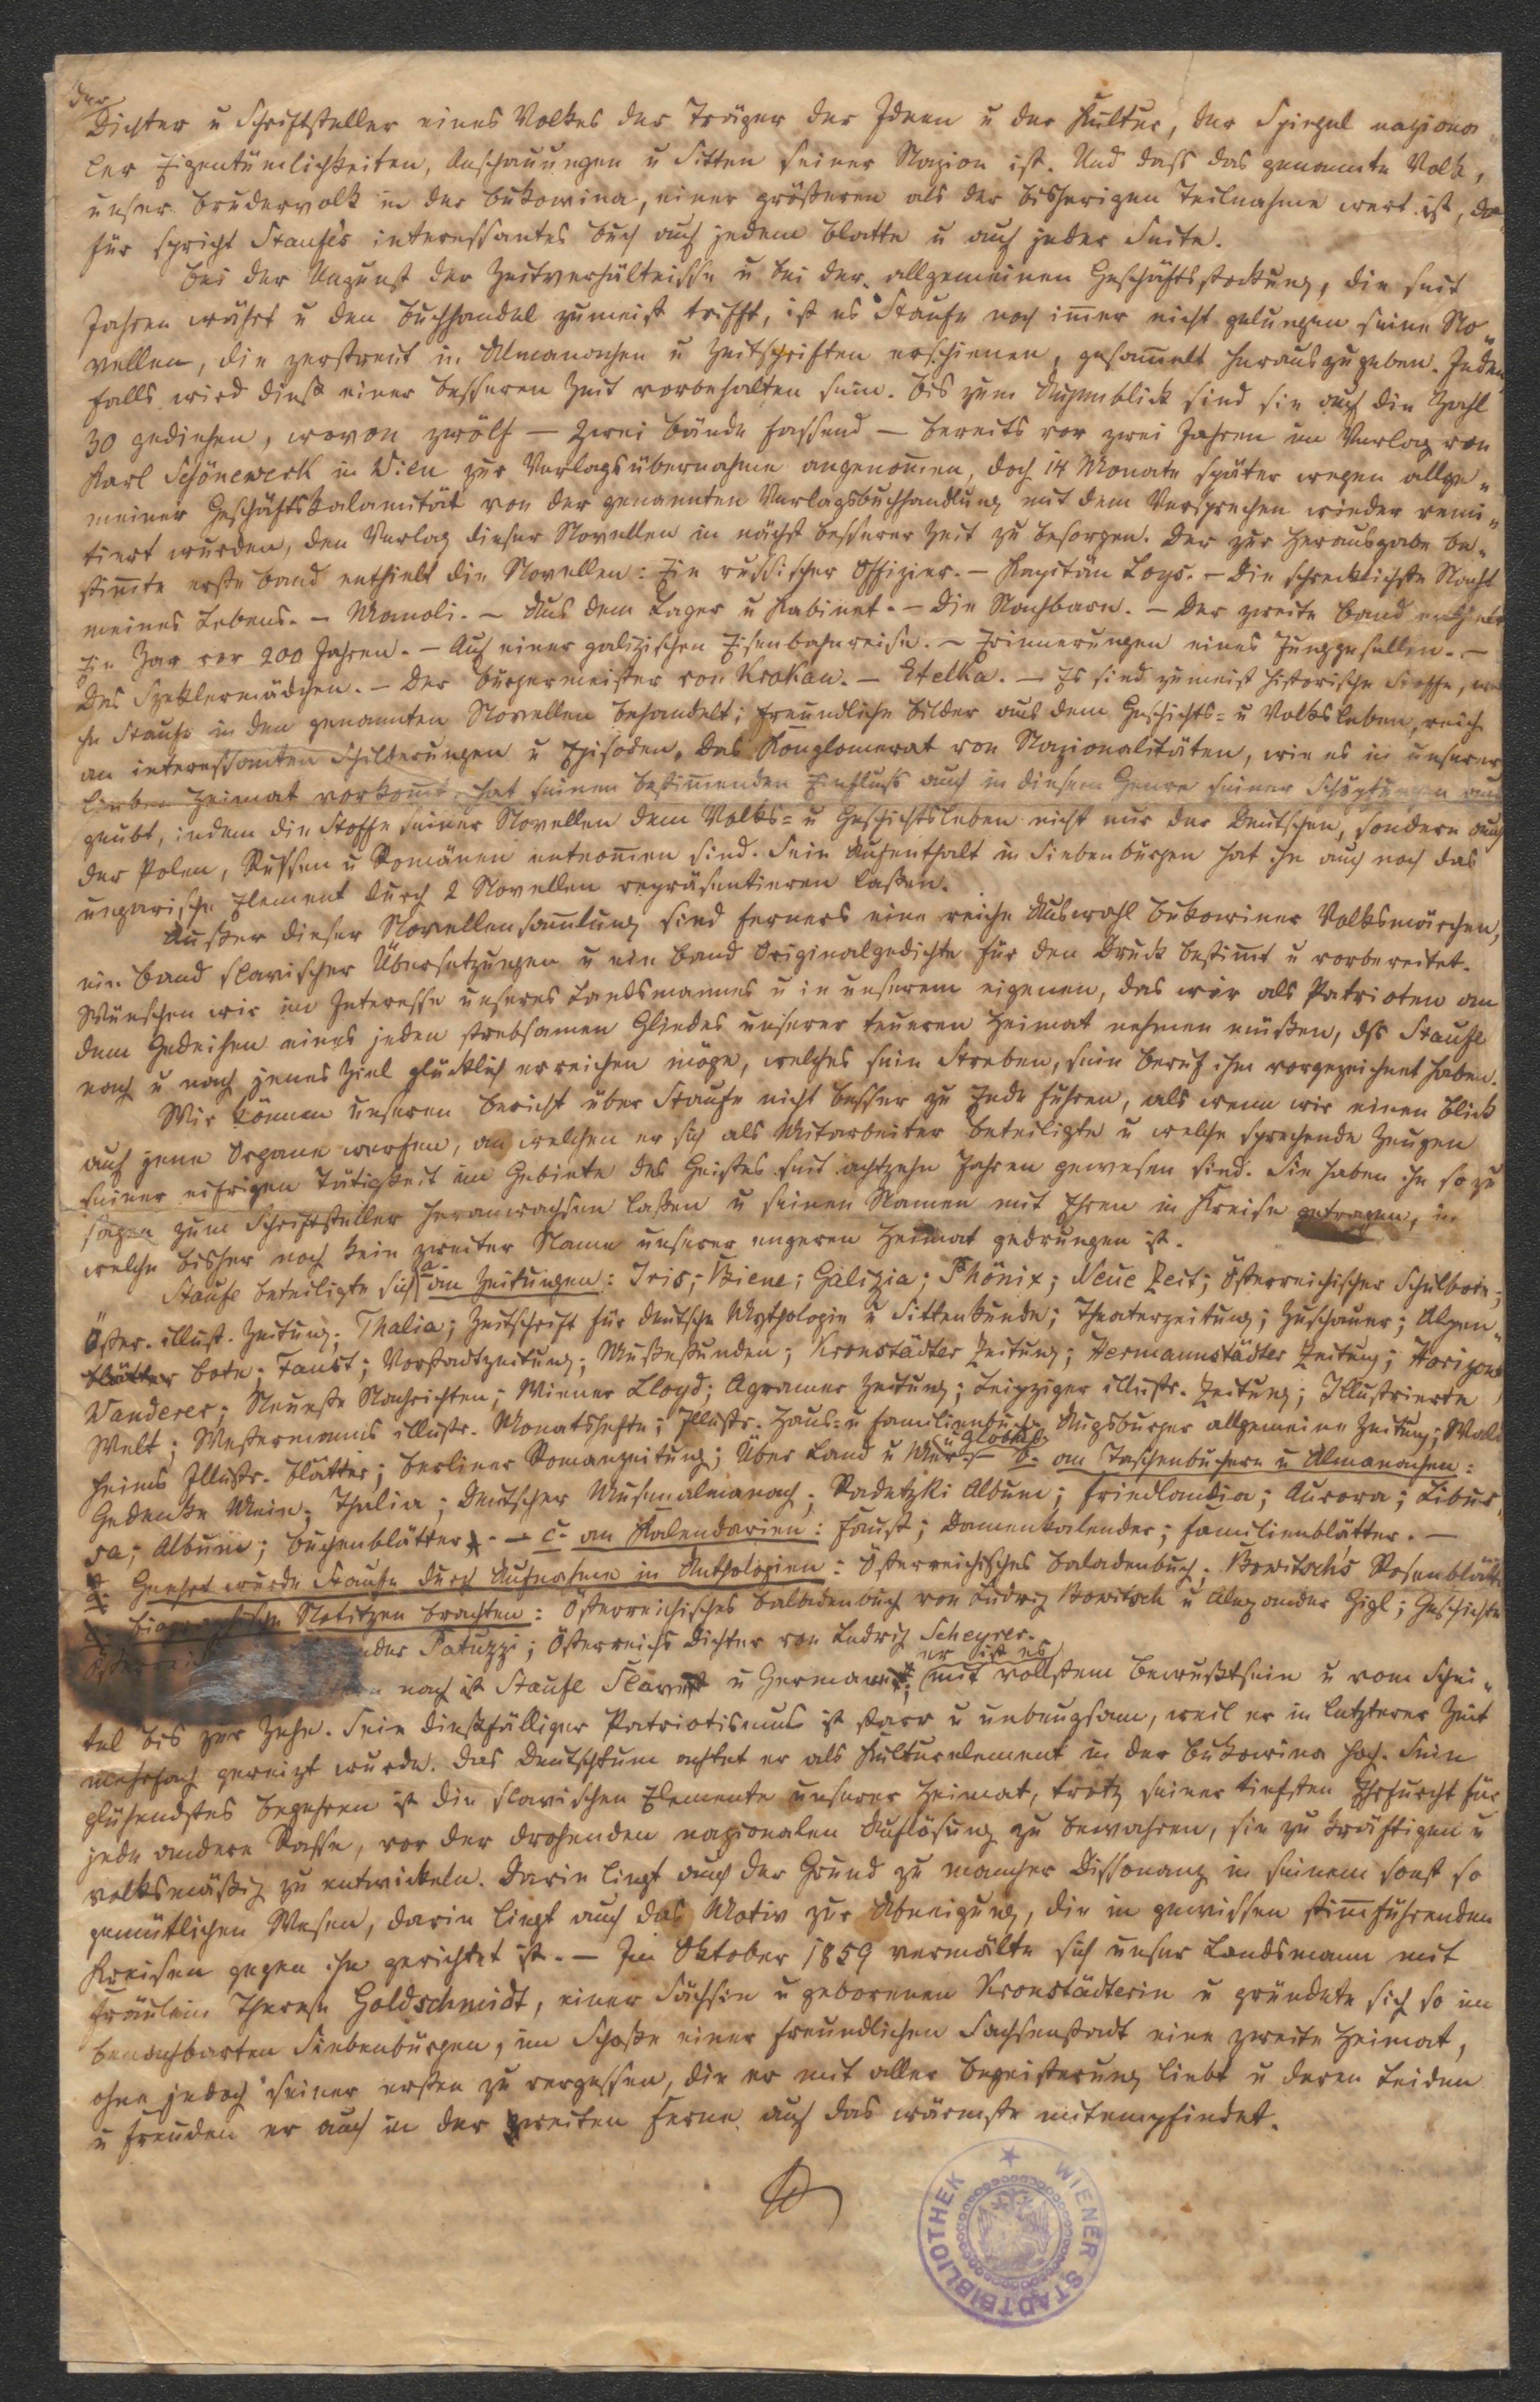 der
Dichter u Schriftsteller eines Volkes der Träger der Ideen u der Kultur, der Spiegel naziona„
ler Eigentümlichkeiten, Anschauungen u Sitten seiner Nazion ist. Und dass das genannte Volk,
unser Brudervolk in der Bukowina, einer größeren als der bisherigen Teilnahme wert ist, da„
für spricht Staufe's interessantes Buch auf jedem Blatte u auf jeder Seite.
Bei der Ungunst der Zeitverhältnisse u bei der allgemeinen Geschäftsstockung, die seit
Jahren währt u den Buchhandel zumeist trifft, ist es Staufe noch immer nicht gelungen seine No„
vellen, die zerstreut in Almanachen u Zeitschriften erschienen, gesammelt herauszugeben. Jeden„
falls wird dieß einer besseren Zeit vorbehalten sein. Bis zum Augenblick sind sie auf die Zahl
30 gediehen, wovon zwölf — zwei Bände fassend — bereits vor zwei Jahren im Verlag von
Karl Schönewerk in Wien zur Verlagsübernahme angenommen, doch 14 Monate später wegen allge„
meiner Geschäftskalamität von der genannten Verlagsbuchhandlung mit dem Versprechen wieder remi„
tiert wurden, den Verlag dieser Novellen in nächst besserer Zeit zu besorgen. Der zur Herausgabe be„
stimmte erste Band enthielt die Novellen: Ein russischer Offizier. — Kapitän Loys. — Die schrecklichste Nacht
meines Lebens. — Manoli. — Aus dem Lager u Kabinet. — Die Nachbarn. — Der zweite Band enthielt
Ein Zar vor 200 Jahren. — Auf einer galizischen Eisenbahnreise. — Erinnerungen eines Junggesellen. —
Das Szeklermädchen. — Der Bürgermeister von Krakau. — Etelka. — Es sind zumeist historische Stoffe, wel
che Staufe in den genannten Novellen behandelt; freundliche Bilder aus dem Geschichts= u Volksleben, reich
an interessanten Schilderungen u Episoden. Das Konglomerat von Nazionalitäten, wie es in unserer
lieben Heimat vorkommt, hat seinen bestimmenden Einfluss auch in diesem Genre seiner Schöpfungen aus
geübt, indem die Stoffe seiner Novellen dem Volks= u Geschichtsleben nicht nur der Deutschen, sondern auch
der Polen, Russen u Romänen entnommen sind. Sein Aufenthalt in Siebenbürgen hat ihn auch noch das
ungarische Element durch 2 Novellen repräsentieren laßen.
Außer dieser Novellensammlung sind ferners eine reiche Auswahl bukowiner Volksmärchen,
ein Band slavischer Übersetzungen u ein Band Originalgedichte für den Druck bestimmt u vorbereitet.
Wünschen wir im Interesse unseres Landsmannes u in unserem eigenen, das wir als Patrioten an
dem Gedeihen eines jeden strebsamen Gliedes unserer teueren Heimat nehmen müßen, dß Staufe
nach u nach jenes Ziel glücklich erreichen möge, welches sein Streben, sein Beruf ihm vorgezeichnet haben.
Wir können unseren Bericht über Staufe nicht besser zu Ende führen, als wenn wir einen Blick
auf jene Organe werfen, an welchen er sich als Mitarbeiter beteiligte u welche sprechende Zeugen
seiner eifrigen Tätigkeit im Gebiete des Geistes seit achtzehn Jahren gewesen sind. Sie haben ihn so zu
sagen zum Schriftsteller heranwachsen laßen u seinen Namen mit Ehren in Kreise getragen, in
welche bisher noch kein zweiter Name unserer engeren Heimat gedrungen ist.
Staufe beteiligte sich a. an Zeitungen: Iris; Biene; Galizia; Phönix; Neue Zeit; Österreichischer Schulbote;
Öster. illust. Zeitung; Thalia; Zeitschrift für deutsche Mythologie u Sittenkunde; Theaterzeitung; Zuschauer; Alpen„
blätter bote; Faust; Vorstadtzeitung; Mußestunden; Kronstädter Zeitung; Hermannstädter Zeitung; Horizont
Wanderer; Neueste Nachrichten; Wiener Lloyd; Agramer Zeitung; Leipziger illustr. Zeitung; Illustrierte
Welt; Westermanns illustr. Monatshefte; Illustr. Haus= u Familienbuch; Augsburger allgemeine Zeitung; Wald
heims Illustr. Blätter; Berliner Romanzeitung; Über Land u Meer u Globus. — b. an Taschenbüchern u Almanachen:
Gedenke Mein; Thalia; Deutscher Musenalmanach; Radetzki Album; Friedlandia; Aurora; Libus„
sa; Album; Buchenblätter. — c. an Kalendarien: Faust; Damenkalender; Familienblätter. —
Geehrt wurde Staufe durch Aufnahme in Anthologien: Österreichisches Baladenbuch; Bowitsch's Rosenblätt
Biographische Notitzen brachten: Österreichisches Balladenbuch von Ludwig Bowitsch u Alexander Gigl; Geschichte
Österreichs ander Patuzzi; Österreichs Dichter von Ludwig Scheyrer.
nach ist Staufe Slavist u Germanist; er ist es mit vollstem Bewußtsein u vom Schei„
tel bis zur Zehe. Sein dießfälliger Patriotismus ist starr u unbeugsam, weil er in letzterer Zeit
mehrfach gereizt wurde. Das Deutschtum achtet er als Kulturelement in der Bukowina hoch. Sein
glühendstes Begehren ist die slavischen Elemente unserer Heimat, trotz seiner tiefsten Ehrfurcht für
jede andere Rasse, vor der drohenden nazionalen Auflösung zu bewahren, sie zu kräftigen u
volksmäßig zu entwickeln. Darin liegt auch der Grund zu mancher Dissonanz in seinem sonst so
gemütlichen Wesen, darin liegt auch das Motiv zur Abneigung, die in gewissen stimmführenden
Kreisen gegen ihn gerichtet ist. — Im Oktober 1859 vermälte sich unser Landsmann mit
Fräulein Therese Goldschmidt, einer Sächsin u geborenen Kronstädterin u gründete sich so im
benachbarten Siebenbürgen, im Schoße einer freundlichen Sachsenstadt eine zweite Heimat,
ohne jedoch seiner ersten zu vergessen, die er mit aller Begeisterung liebt u deren Leiden
u Freuden er auch in der zweiten Ferne auf das wärmste mitempfindet.
WIENER STADTBIBLIOTHEK